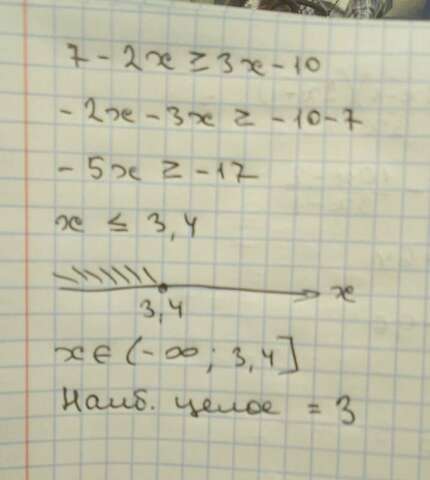 7 - 2x ≥ 3x - 10
- 2x - 3x ≥ - 10 - 7
- 5x ≥ - 17
x ≤ 3,4
x
3,4
x ∈ (-∞; 3,4]
Наиб. целое = 3